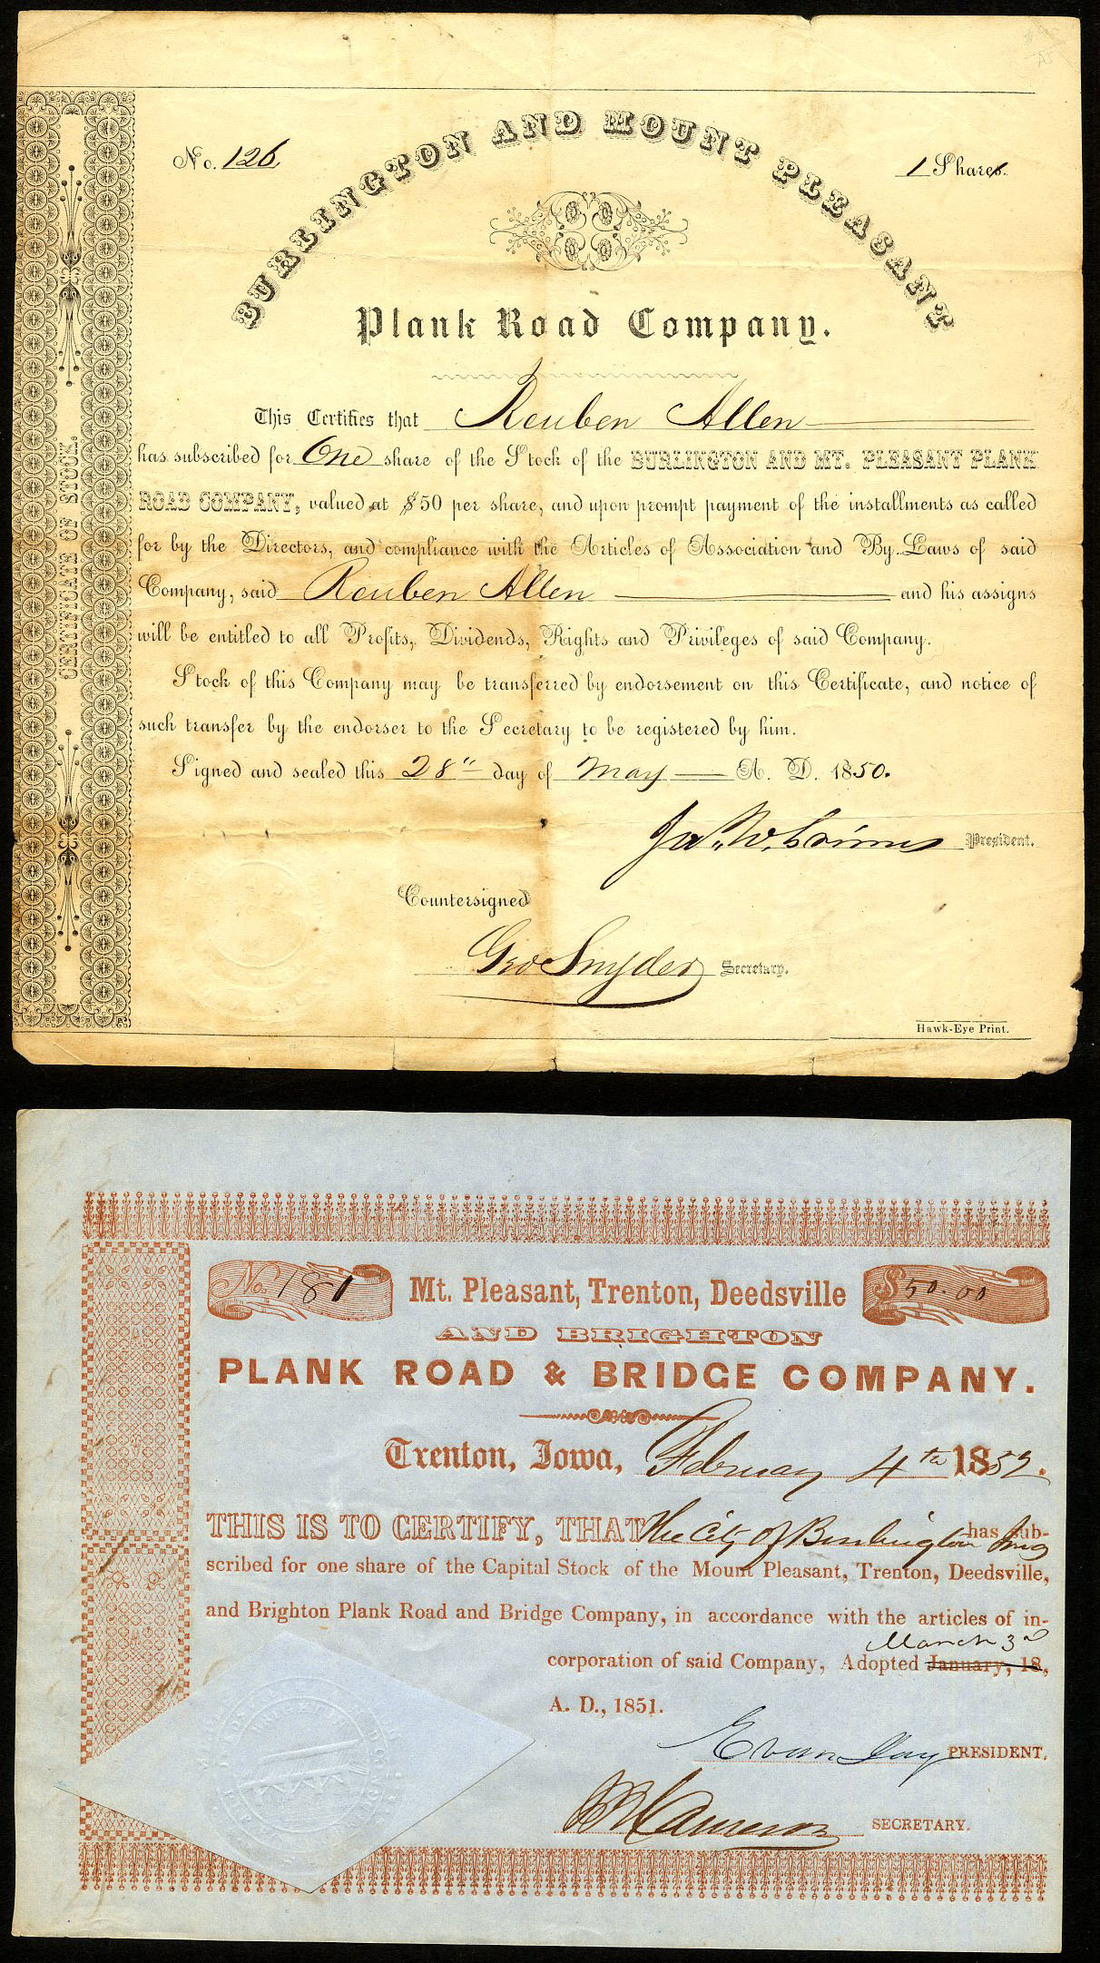 No. 126
1 Share
BURLINGTON AND MOUNT PLEASANT
Plank Road Company.
CERTIFICATE OF STOCK.
This Certifies that Reuben Allen
has subscribed for One share of the Stock of the BURLINGTON AND MT. PLEASANT PLANK
ROAD COMPANY, valued at $50 per share, and upon prompt payment of the installments as called
for by the Directors, and compliance with the Articles of Association and By-Laws of said
Company, said Reuben Allen and his assigns
will be entitled to all Profits, Dividends, Rights and Privileges of said Company.
Stock of this Company may be transferred by endorsement on this Certificate, and notice of
such transfer by the endorser to the Secretary to be registered by him.
Signed and sealed this 28" day of May A. D. 1850.
Jas. W. Grimes President.
Countersigned
Geo Snyder Secretary.
Hawk-Eye Print.
No. 181
Mt. Pleasant, Trenton, Deedsville
$50.00
AND BRIGHTON
PLANK ROAD & BRIDGE COMPANY.
Trenton, Iowa, February 4th 1852.
THIS IS TO CERTIFY, THAT The City of Burlington has sub-
scribed for one share of the Capital Stock of the Mount Pleasant, Trenton, Deedsville,
and Brighton Plank Road and Bridge Company, in accordance with the articles of in-
March 3d
corporation of said Company, Adopted January, 18,
A. D., 1851.
Evan Jay PRESIDENT.
Cameron SECRETARY.